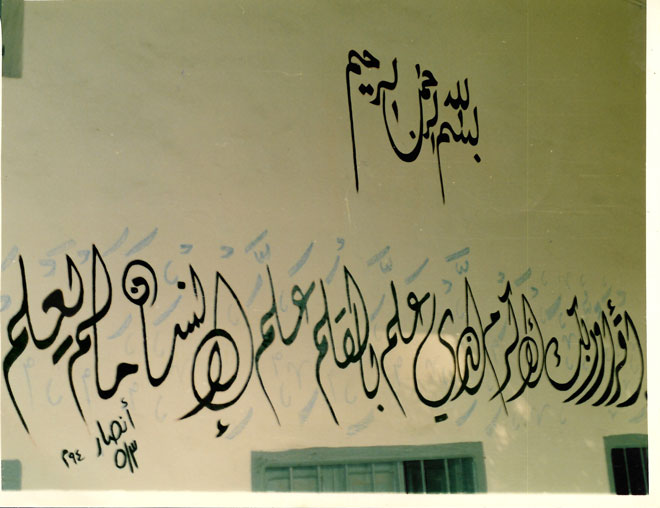 بسم الله الرحمن الرحيم
اقرأ وربك الأكرم الذي علم بالقلم علم الإنسان ما لم يعلم
أنصار
٥/٣
٩٤م